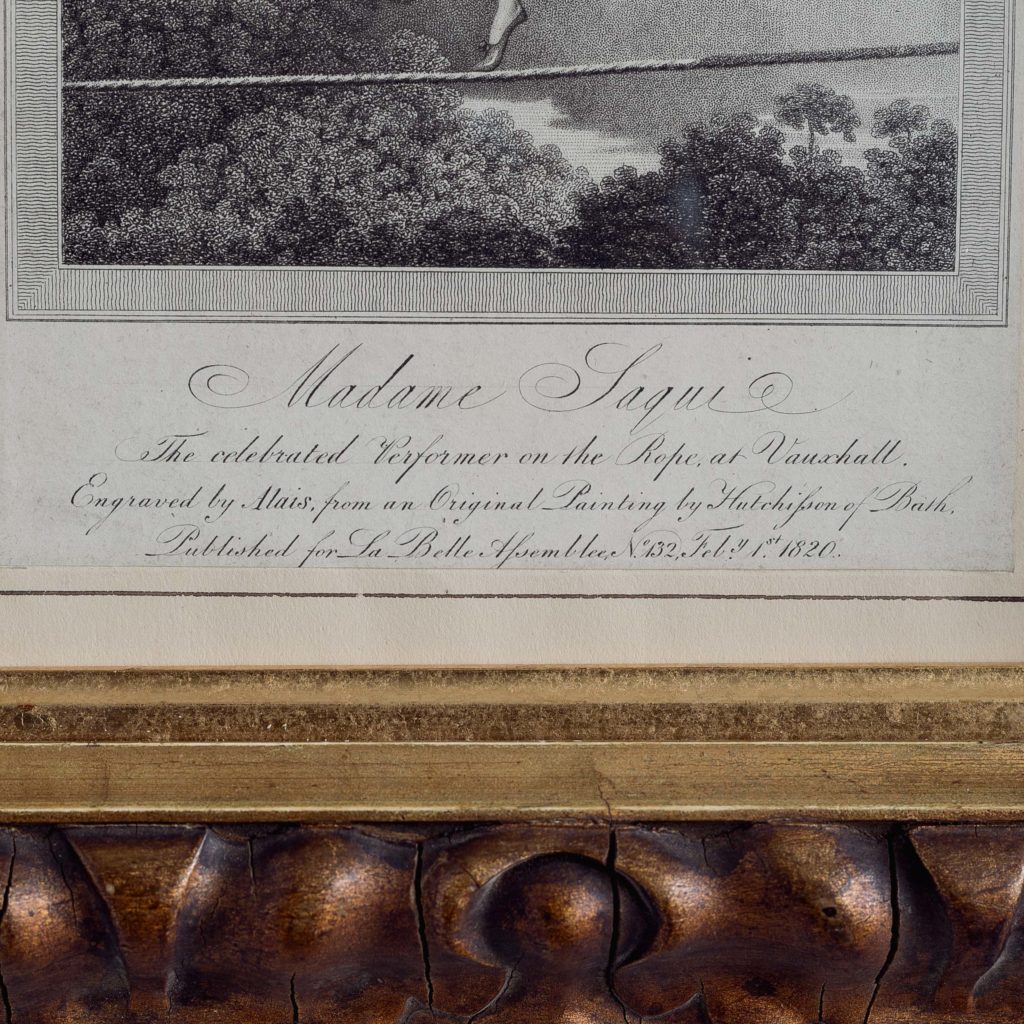 Madame Saqui
The celebrated Performer on the Rope, at Vauxhall.
Engraved by Alais, from an Original Painting by Hutchiſson of Bath,
Published for La Belle Aſsemblee, Nº. 132, Feb.y 1.st 1820.